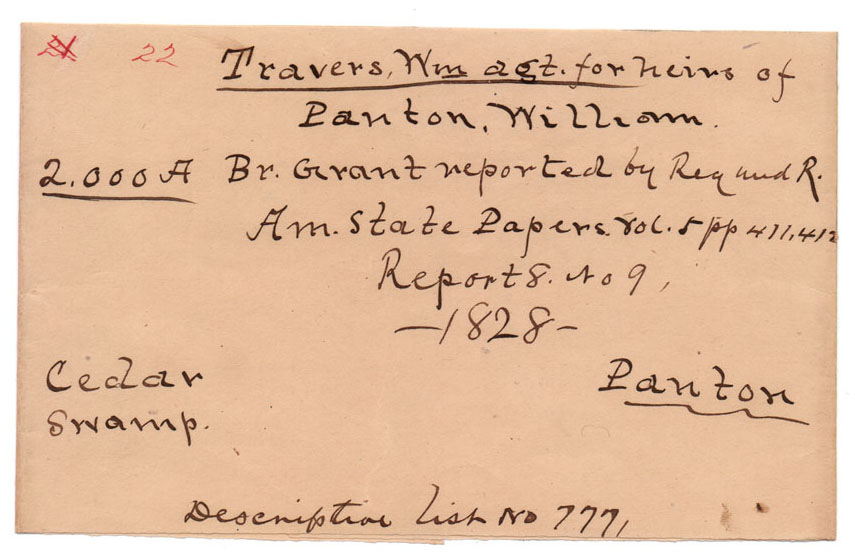 22
Travers, Wm agt. for heirs of
Panton, William.
2.000 A Br. Grant reported by Reg and R.
Am. State Papers. Vol. 5 pp 411,412
Report 8. No 9,
-1828-
Cedar
Swamp.
Panton
Descriptive list No 777,